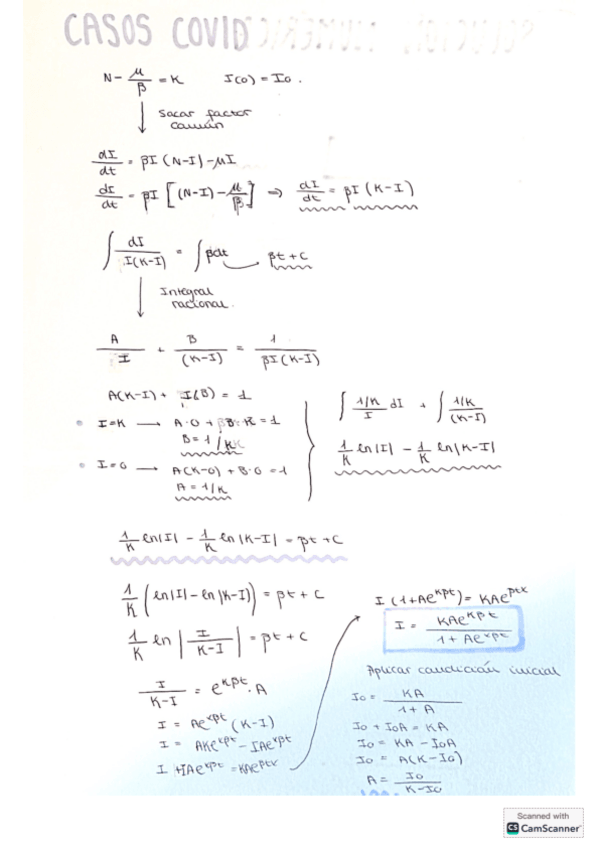 CASOS COVID
N - μ/β = K    I(0) = I₀.
Sacar factor
común
dI/dt = βI (N-I) - μI
dI/dt = βI [(N-I) - μ/β] ⇒ dI/dt = βI (K-I)
∫ dI/I(K-I) = ∫ βdt    βt + C
Integral
racional.
A/I + B/(K-I) = 1/βI(K-I)
A(K-I) + I(B) = 1
I=K → A·0 + B·K = 1
B = 1/K
I=0 → A(K-0) + B·0 = 1
A = 1/K
∫ 1/K/I dI + ∫ 1/K/(K-I)
1/K ln|I| - 1/K ln|K-I|
1/K ln|I| - 1/K ln|K-I| = βt + C
1/K (ln|I| - ln|K-I|) = βt + C
1/K ln |I/K-I| = βt + C
I/K-I = e^Kβt · A
I = Ae^Kβt (K-I)
I = AKe^Kβt - IAe^Kβt
I + IAe^Kβt = KAe^βtK
I (1+Ae^Kβt) = KAe^βtK
I = KAe^Kβt / 1 + Ae^Kβt
Aplicar condición inicial
I₀ = KA/1 + A
I₀ + I₀A = KA
I₀ = KA - I₀A
I₀ = A(K-I₀)
A = I₀/K-I₀
Scanned with
CS CamScanner